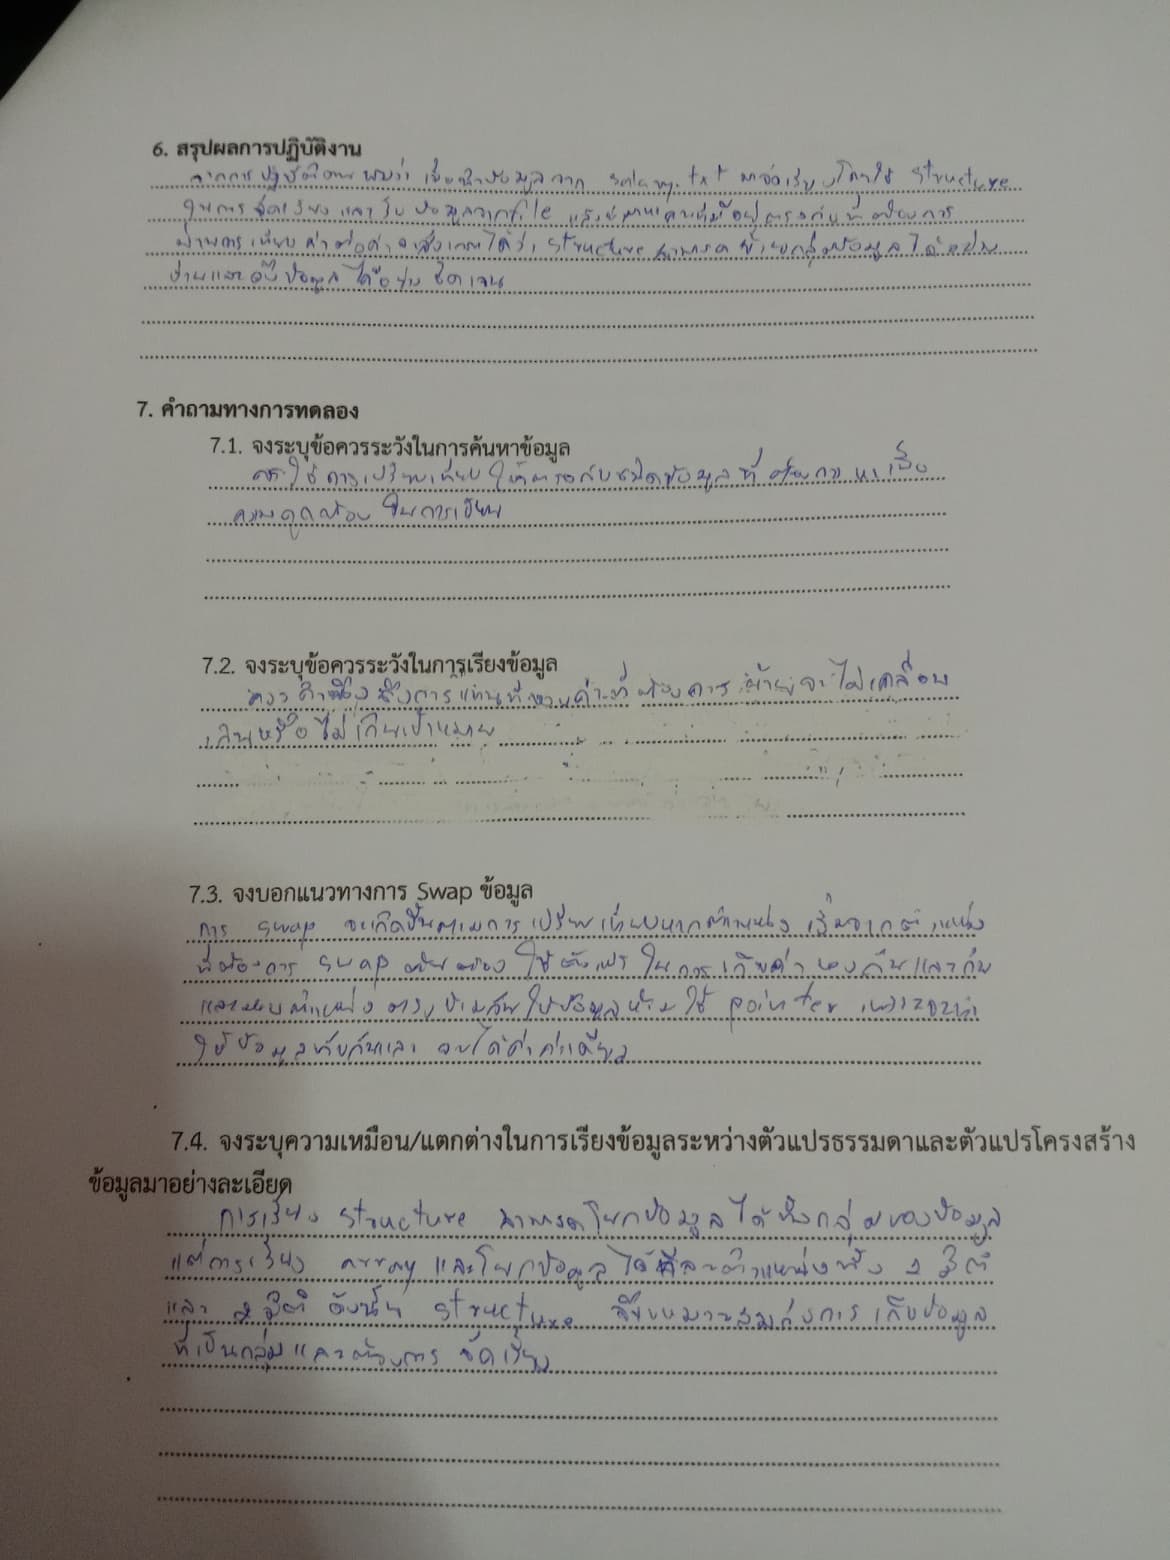 6. สรุปผลการปฏิบัติงาน
จากการปฏิบัติงาน พบว่า เมื่อนำข้อมูลจาก salary.txt มาจัดเรียงโดยใช้ structure
ในการจัดเรียง และรับข้อมูลจาก file
ผ่านการเทียบค่าต่อค่า จะสังเกตได้ว่า structure สามารถย้ายกลุ่มข้อมูลได้
ง่ายและดึงข้อมูลได้อย่างชัดเจน
7. คำถามทางการทดลอง
7.1. จงระบุข้อควรระวังในการค้นหาข้อมูล
ควรใช้การเปรียบเทียบให้ตรงกับชนิดข้อมูลที่ต้องการหาเพื่อ
ความถูกต้องในการเขียน
7.2. จงระบุข้อควรระวังในการเรียงข้อมูล
ควรคำนึงถึงการแทนที่ ค่าที่ต้องการย้ายจะไม่เคลื่อน
เกินหรือไม่เกินเป้าหมาย
7.3. จงบอกแนวทางการ Swap ข้อมูล
การ swap จะเกิดขึ้นตามการเปรียบเทียบหากตำแหน่ง เริ่มจากตำแหน่ง
ที่ต้องการ swap นั้นต้องใช้ตัวแปรในการเก็บค่าของกันและกัน
และ ตำแหน่ง ข้อมูลห้ามใช้ pointer เพราะจะทำ
ให้ข้อมูลทับกันและจะได้ค่าค่าเดียว
7.4. จงระบุความเหมือน/แตกต่างในการเรียงข้อมูลระหว่างตัวแปรธรรมดาและตัวแปรโครงสร้าง
ข้อมูลมาอย่างละเอียด
การเรียง structure สามารถโยกข้อมูลได้ทั้งกลุ่มของข้อมูล
แต่การเรียง array และโยกข้อมูลได้ทีละตำแหน่งทั้ง 1 มิติ
และ 2 มิติ ดังนั้น structure จึงเหมาะสมต่อการเก็บข้อมูล
ที่เป็นกลุ่มและต้องการจัดเรียง